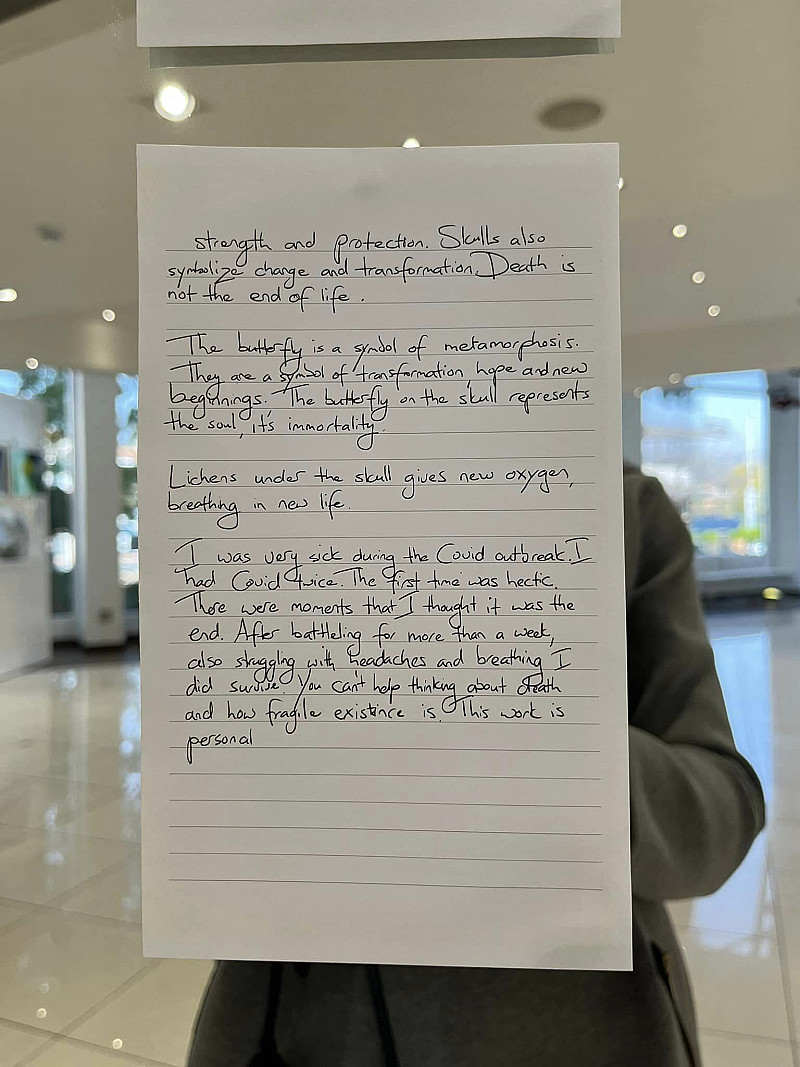 strength and protection. Skulls also
symbolize change and transformation. Death is
not the end of life.
The butterfly is a symbol of metamorphosis.
They are a symbol of transformation, hope and new
beginnings. The butterfly on the skull represents
the soul, it's immortality.
Lichens under the skull gives new oxygen,
breathing in new life.
I was very sick during the Covid outbreak. I
had Covid twice. The first time was hectic.
There were moments that I thought it was the
end. After battleling for more than a week,
also struggling with headaches and breathing I
did survive. You can't help thinking about death
and how fragile existence is. This work is
personal